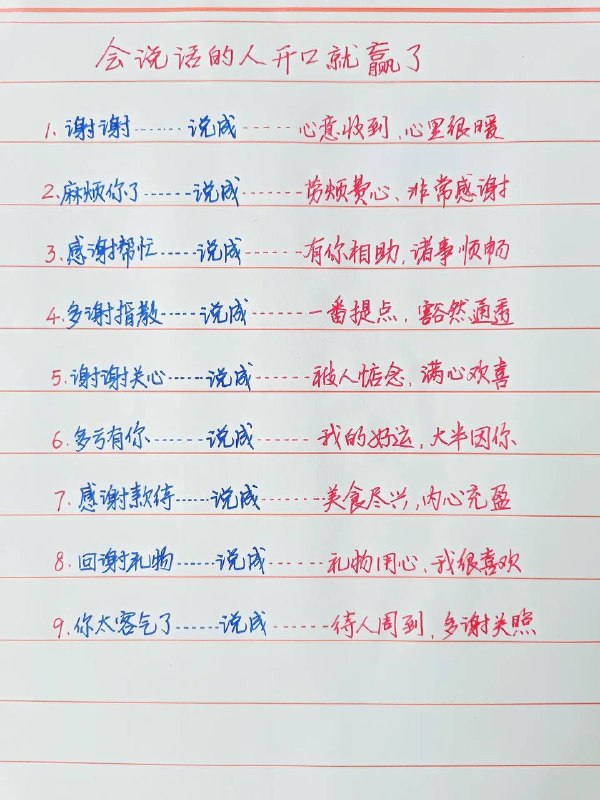 会说话的人开口就赢了
1.谢谢……说成……心意收到,心里很暖
2.麻烦你了……说成……劳烦费心、非常感谢
3.感谢帮忙……说成……有你相助,诸事顺畅
4.多谢指教……说成……一番提点,豁然通透
5.谢谢关心……说成……被人惦念,满心欢喜
6.多亏有你……说成……我的好运,大半因你
7.感谢款待……说成……美食尽兴,内心充盈
8.回谢礼物……说成……礼物用心、我很喜欢
9.你太客气了……说成……待人周到,多谢关照